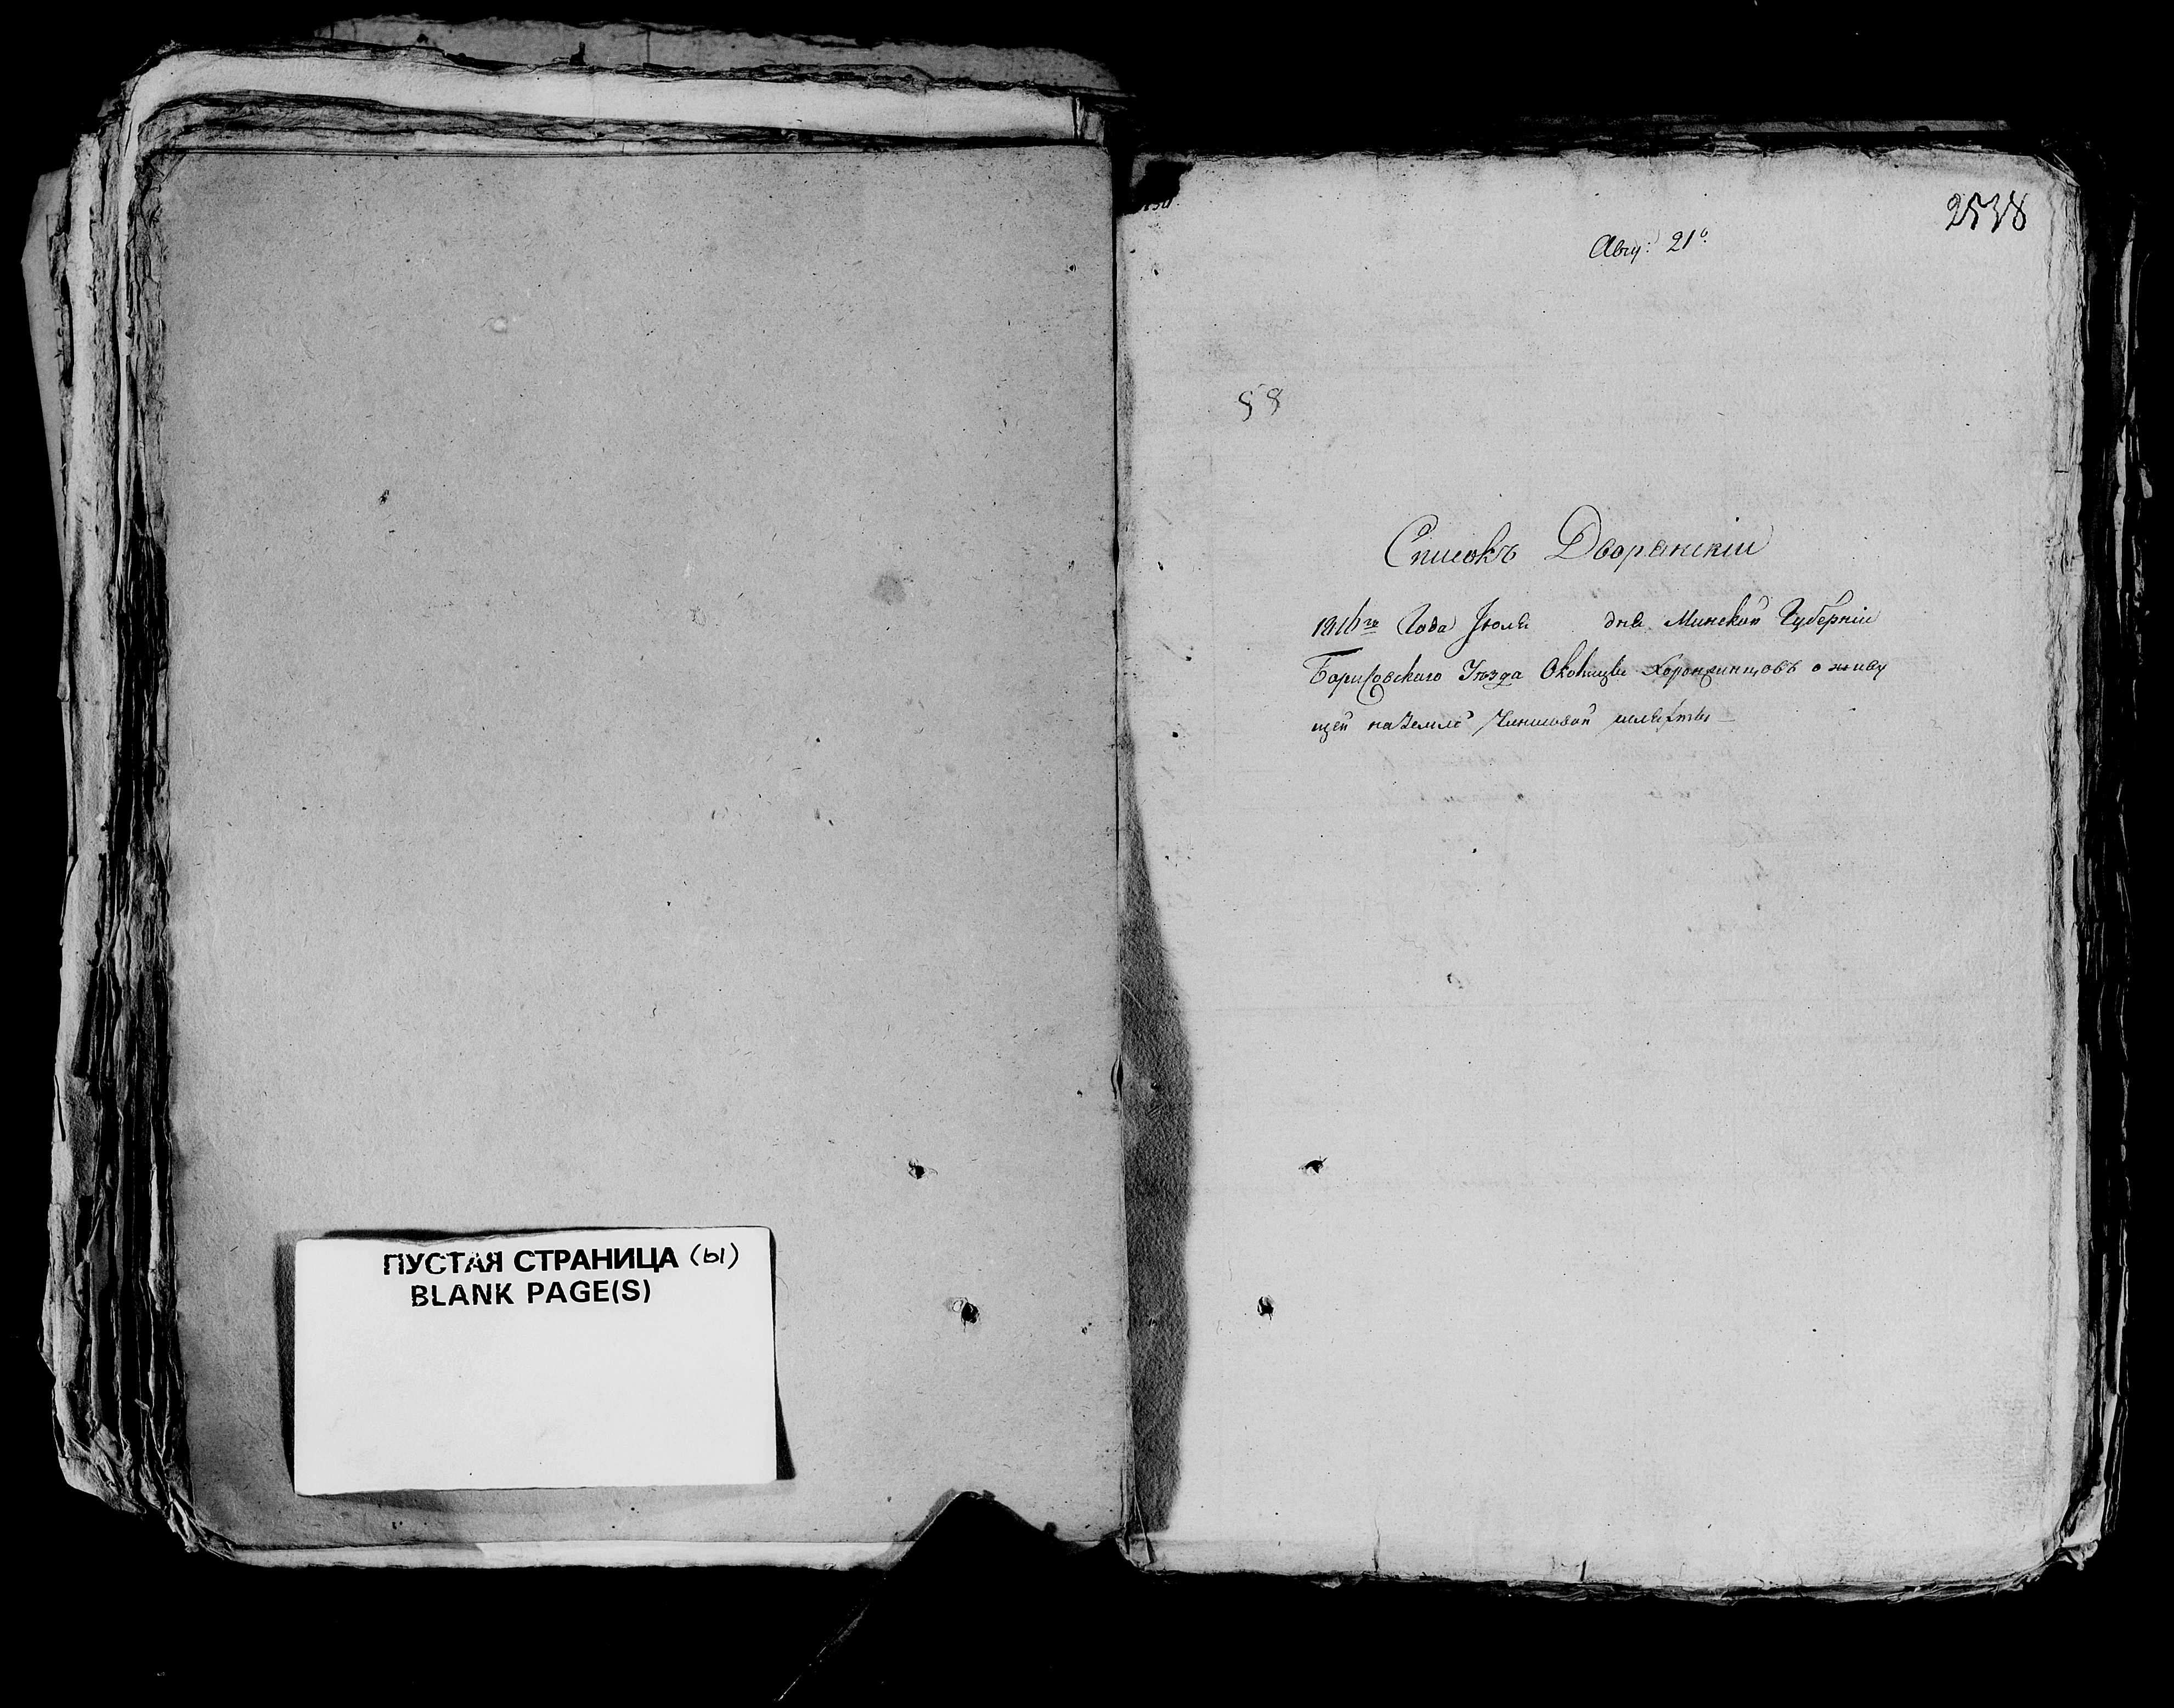 ПУСТАЯ СТРАНИЦА (ы)
BLANK PAGE(S)
2538
Авгу: 21º
58
Списокъ Дворянскiи
1816го Года Iюля дня Минской Губернiи
Борисовскаго Уѣзда Околицы Хоронжинцовъ о живу
щей на Земле Чиншовой шляхты